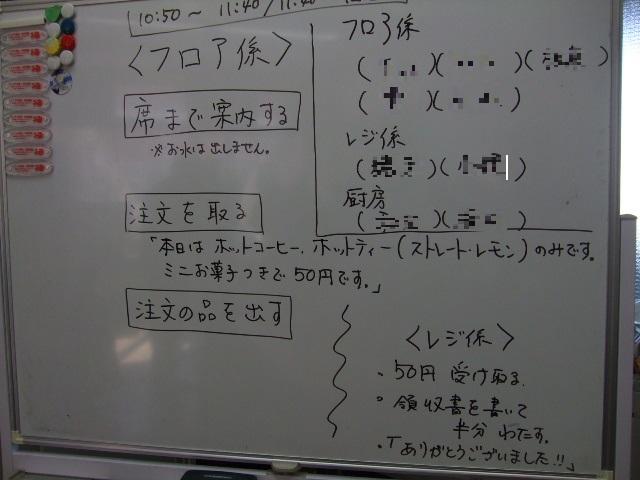 10:50 ～ 11:40 / 11:40
〈フロア係〉
席まで案内する
※お水は出しません。
注文を取る
「本日は ホットコーヒー、ホットティー(ストレート・レモン)のみです。
ミニお菓子つきで 50円です。」
注文の品を出す
フロア係
( )( )( )
( )( )
レジ係
( )( )
厨房
( )( )
〈レジ係〉
・50円 受け取る
・領収書を書いて
半分 わたす。
・「ありがとうございました!!」